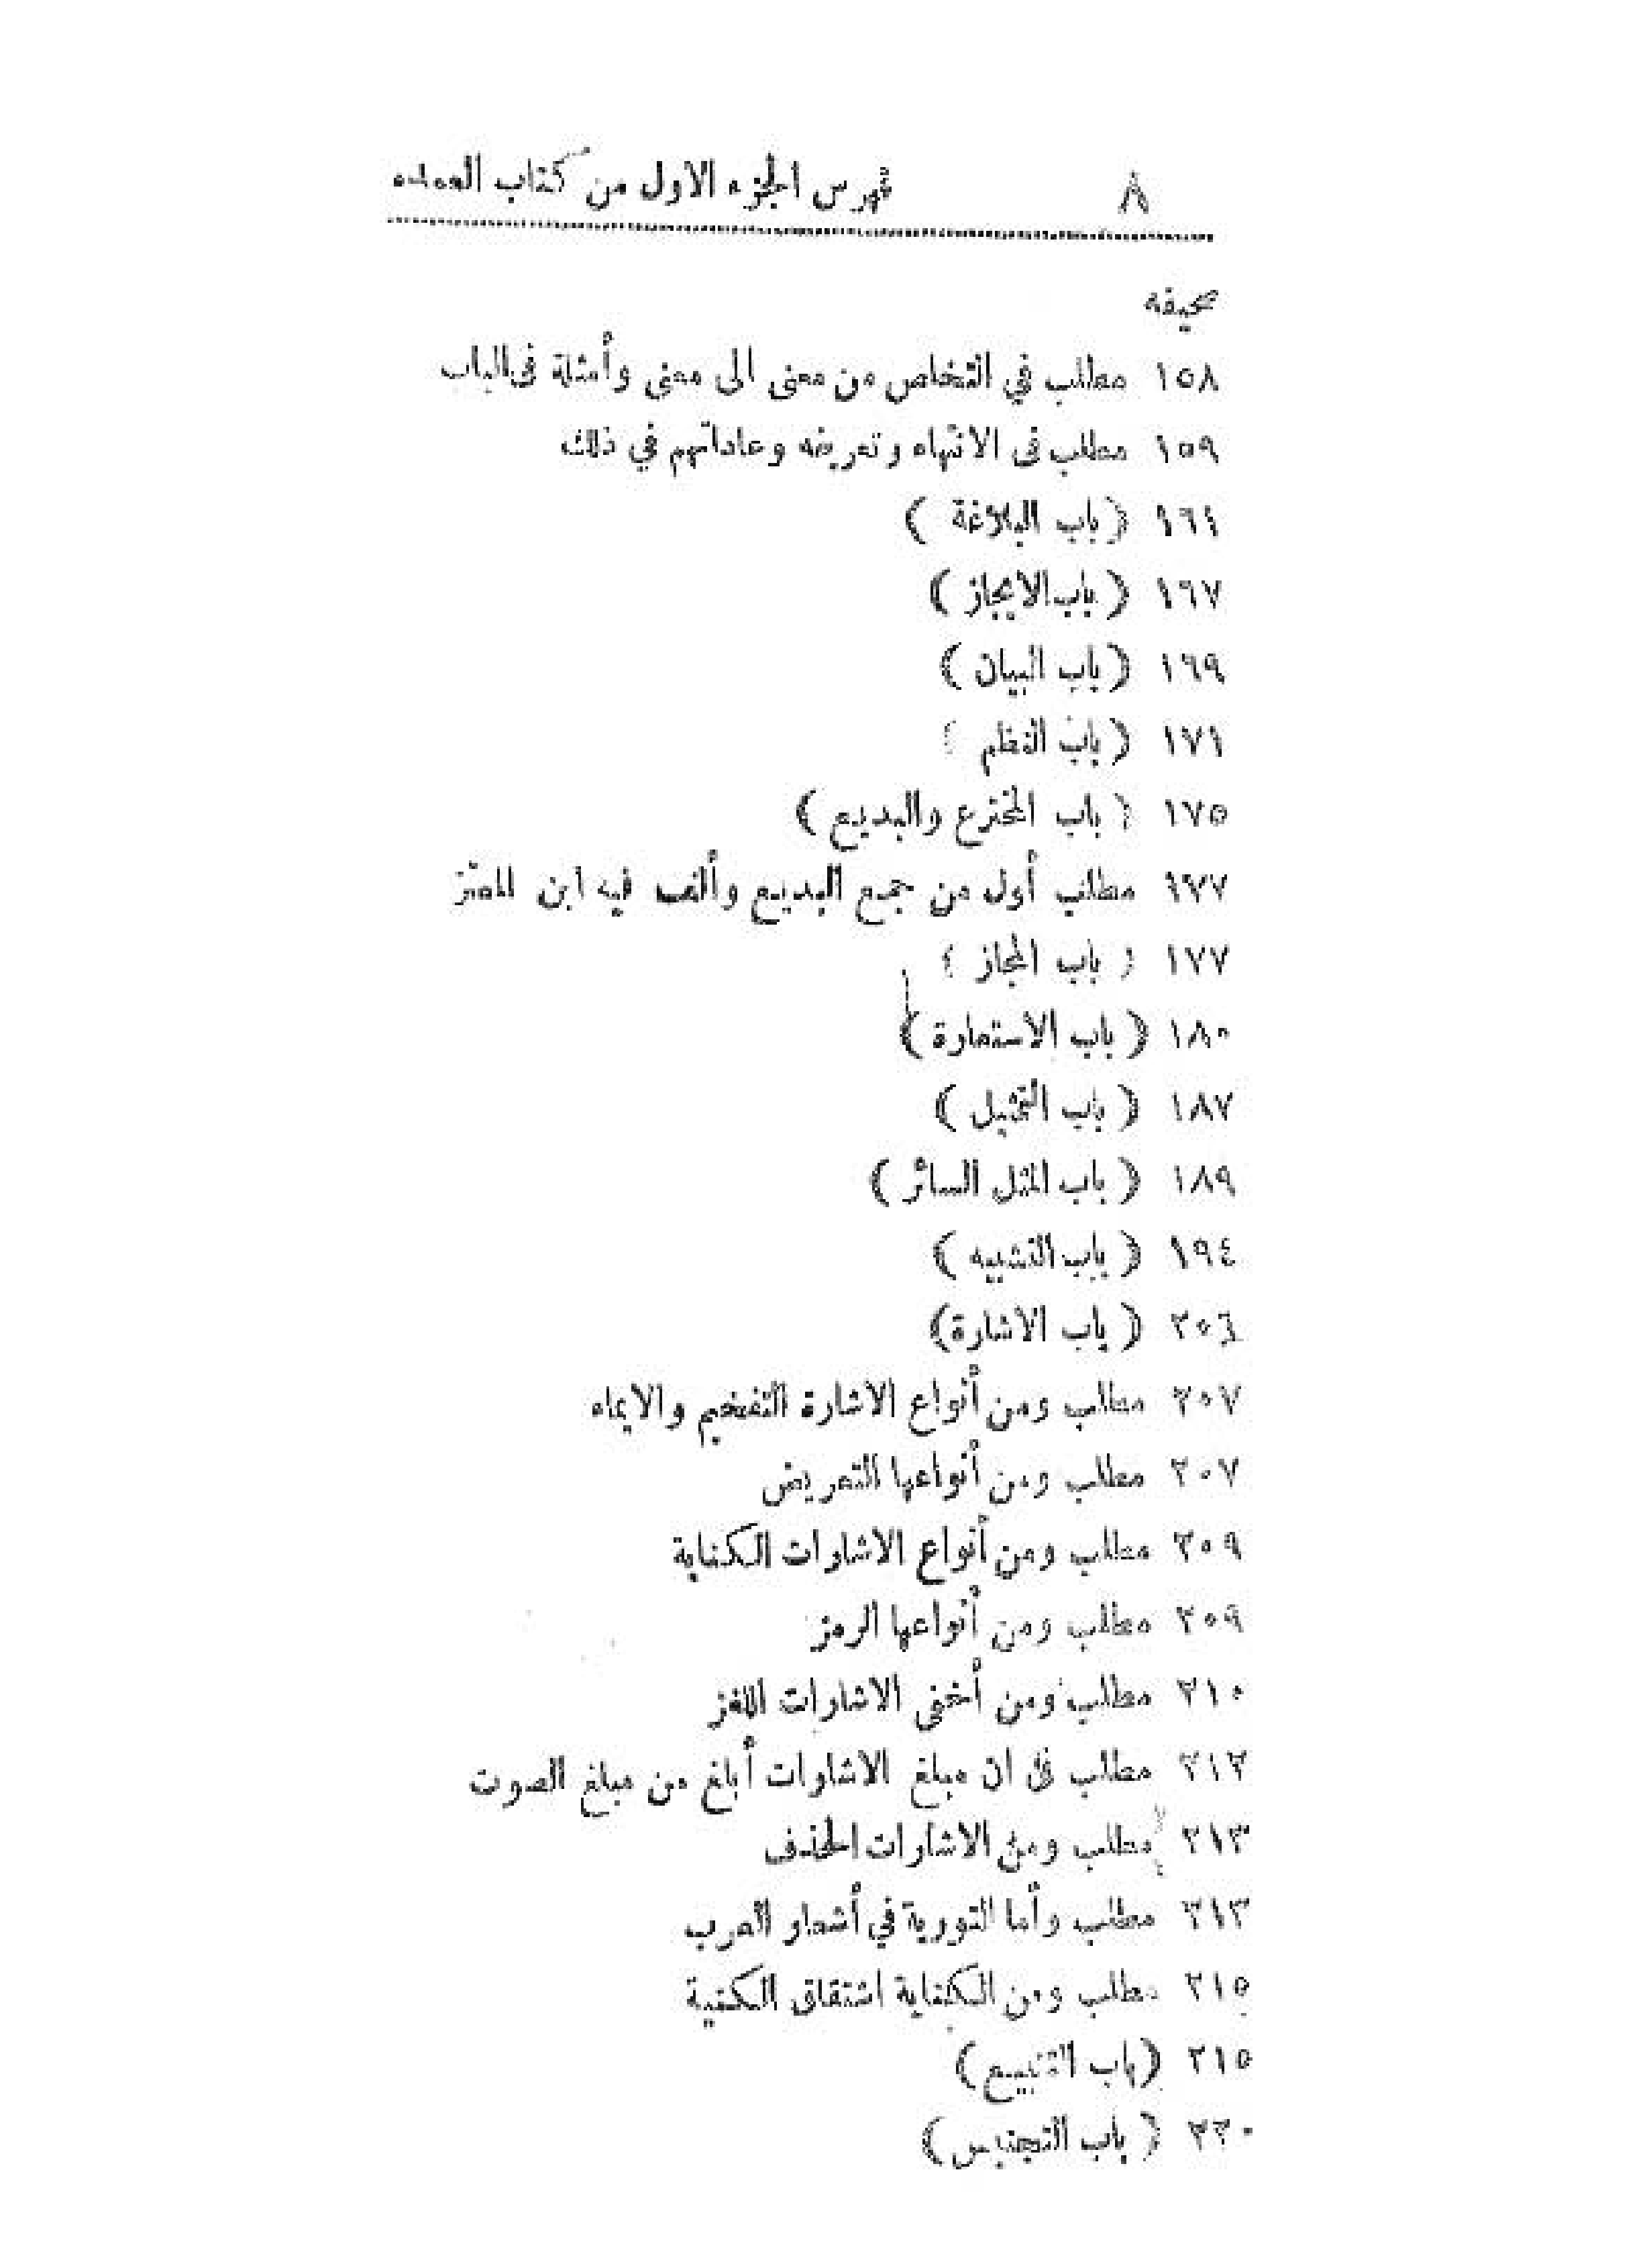 ٨ فهرس الجزء الاول من كتاب العمده
صحيفه
١٥٨ مطلب في التخلص من معنى الى معنى وأمثلة في الباب
١٥٩ مطلب فى الانتهاء وتعريفه وعاداتهم في ذلك
١٦١ ( باب البلاغة )
١٦٧ ( باب الايجاز )
١٦٩ ( باب البيان )
١٧١ ( باب النظم )
١٧٥ ( باب المخترع والبديع )
١٧٧ مطلب أول من جمع البديع وألف فيه ابن المعتز
١٧٧ ( باب المجاز )
١٨٠ ( باب الاستعارة )
١٨٧ ( باب التمثيل )
١٨٩ ( باب المثل السائر )
١٩٤ ( باب التشبيه )
٢٠٦ ( باب الاشارة)
٢٠٧ مطلب ومن أنواع الاشارة التفخيم والايماء
٢٠٧ مطلب ومن أنواعها التعريض
٢٠٩ مطلب ومن أنواع الاشارات الكناية
٢٠٩ مطلب ومن أنواعها الرمز
٢١٠ مطلب ومن أخفى الاشارات اللغز
٢١٢ مطلب في ان مبلغ الاشارات أبلغ من مبلغ الصوت
٢١٣ مطلب ومن الاشارات الحذف
٢١٣ مطلب وأما التورية في أشعار العرب
٢١٥ مطلب ومن الكناية اشتقاق الكنية
٢١٥ (باب التتبيع)
٢٢٠ ( باب التجنيس)